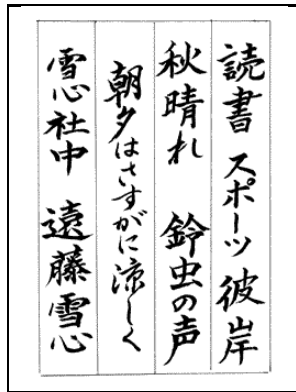 読書 スポーツ 彼岸
秋晴れ 鈴虫の声
朝夕はさすがに涼しく
雪心社中 遠藤雪心